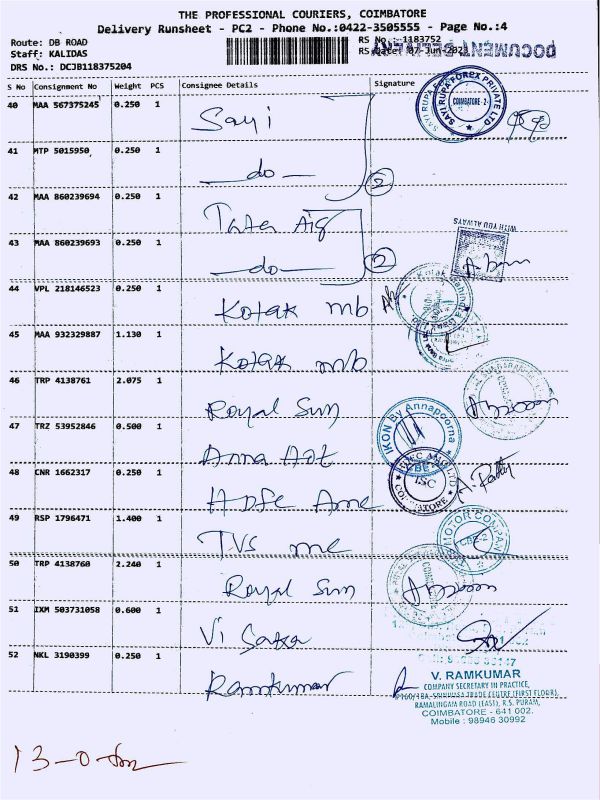 THE PROFESSIONAL COURIERS, COIMBATORE
Delivery Runsheet - PC2 - Phone No.:0422-3505555 - Page No.:4
Route: DB ROAD RS No.: 1183752
Staff: KALIDAS RS Date: 07-Jun-2021 DOCUMENT DELIVERY
DRS No.: DCJB118375204
S No Consignment No Weight PCS Consignee Details Signature
40 MAA 567375245 0.250 1 Sayi
SAYI RUPA FOREX PRIVATE LTD
COIMBATORE - 2
41 MTP 5015950 0.250 1 -do-
2
42 MAA 860239694 0.250 1 Tata Aig
WITH YOU ALWAYS
43 MAA 860239693 0.250 1 -do-
2
44 VPL 218146523 0.250 1 Kotak mb
45 MAA 932329887 1.130 1 Kotak mb
46 TRP 4138761 2.075 1 Royal Sun
47 TRZ 53952846 0.500 1 Anna
IKON By Annapoorna
48 CNR 1662317 0.250 1 Hdfc Amc
HDFC AMC LTD
ISC
COIMBATORE
49 RSP 1796471 1.400 1 TVS mc
MOTOR COMPANY
50 TRP 4138760 2.240 1 Royal Sun
51 IXM 503731058 0.600 1 Vi
52 NKL 3190399 0.250 1 Ramkumar
V. RAMKUMAR
COMPANY SECRETARY IN PRACTICE,
SRINIVASA TRADE CENTRE (FIRST FLOOR),
RAMALINGAM ROAD (EAST), R.S. PURAM,
COIMBATORE - 641 002.
Mobile : 98946 30992